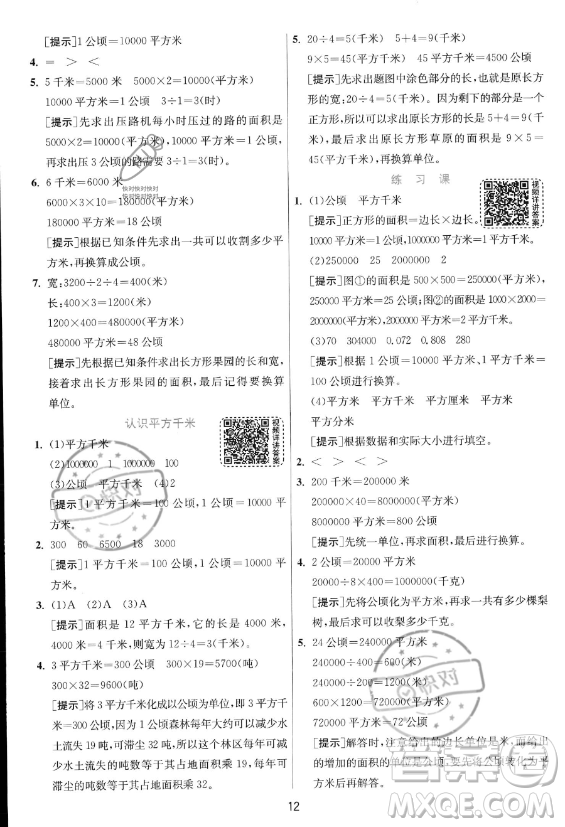 [提示]1 公顷=10000 平方米
4. =　>　<
5. 5 千米=5000 米　5000×2=10000(平方米)
10000 平方米=1 公顷　3÷1=3(时)
[提示]先求出压路机每小时压过的路的面积
5000×2=10000(平方米),10000 平方米=1 公顷,
再求出压 3 公顷的路需要 3÷1=3(时)。
6. 6 千米=6000 米
6000×3×10=180000(平方米)
180000 平方米=18 公顷
[提示]根据已知条件先求出一共可以收割多少平
方米,再换算成公顷。
7. 宽:3200÷2÷4=400(米)
长:400×3=1200(米)
1200×400=480000(平方米)
480000 平方米=48 公顷
[提示]先根据已知条件求出长方形果园的长和宽,
接着求出长方形果园的面积,最后记得要换算
单位。
认识平方千米
1. (1)平方千米
(2)1000000　1　1000000　100
(3)公顷　平方千米　(4)2
[提示]1 平方千米=100 公顷,1 公顷=10000 平
方米。
2. 300　60　6500　18　3000
[提示]1 平方千米=100 公顷=1000000 平方
米。
3. (1)A　(2)A　(3)A
[提示]面积是 12 平方千米,它的长是 4000 米。
4000 米=4 千米,则宽为 12÷4=3(千米)。
4. 3 平方千米=300 公顷　300×19=5700(吨)
300×32=9600(吨)
[提示]将 3 平方千米化成以公顷为单位,即 3 平方千
米=300 公顷,因为 1 公顷森林每年大约可以减少水
土流失 19 吨,可滞尘 32 吨,所以这个林区每年可减
少水土流失的吨数等于其占地面积乘 19,每年可
滞尘的吨数等于其占地面积乘 32。
5. 20÷4=5(千米)　5+4=9(千米)
9×5=45(平方千米)　45 平方千米=4500 公顷
[提示]先求出题图中涂色部分的长,也就是长方
形的宽:20÷4=5(千米)。因为剩下的部分是一个
正方形,所以可以求出原长方形的长是 5+4=9(千
米)。最后求出原长方形草原的面积是 9×5=
45(平方千米),再换算单位。
练 习 课
1. (1)公顷　平方千米
[提示]正方形的面积=边长×边长。
1000×1000=1000000(平方米),
1000000 平方米=1 平方千米。
(2)250000　25　2000000　2
[提示]图①的面积是 500×500=250000(平方米),
250000 平方米=25 公顷;图②的面积是 1000×2000=
2000000(平方米),2000000 平方米=2 平方千米。
(3)70　304000　0.072　0.808　280
[提示]根据 1 公顷=10000 平方米、1 平方千米=
100 公顷进行换算。
(4)平方米　平方千米　平方厘米　平方米
平方分米
[提示]根据数据和实际大小进行填空。
2. =　>　>　<
3. 200 千米=200000 米
200000×40=8000000(平方米)
8000000 平方米=800 公顷
[提示]先统一单位,再求面积,最后进行换算。
4. 2 公顷=20000 平方米
20000÷8×400=1000000(千克)
[提示]先将公顷化为平方米,再求一共有多少棵梨
树,最后求可以收获梨多少千克。
5. 24 公顷=240000 平方米
240000÷400=600(米)
600×1200=720000(平方米)
720000 平方米=72 公顷
[提示]解答时,注意给出的边长单位是米,而给出
的增加的面积单位是公顷,要先将公顷转化为平方
米后再解答。
12
视频详讲答案
视频详讲答案
快对快对快对
快对快对快对
快对
快对
答案圈
MXQE.COM